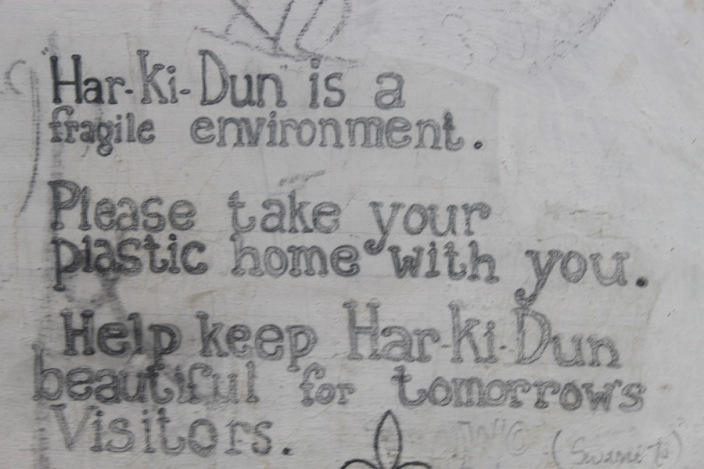 "Har-Ki-Dun" is a
fragile environment.
Please take your
plastic home with you.
Help keep Har-Ki-Dun
beautiful for tomorrows
Visitors.